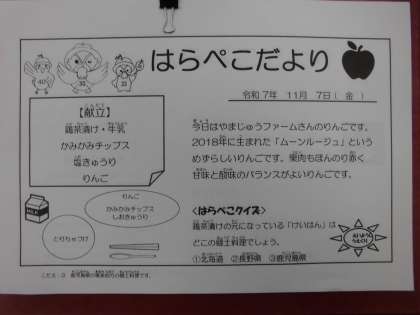 はらぺこだより
令和7年 11月 7日(金)
【献立】
鶏茶漬け・牛乳
かみかみチップス
塩きゅうり
りんご
今日はやまじゅうファームさんのりんごです。
2018年に生まれた「ムーンルージュ」という
めずらしいりんごです。果肉もほんのり赤く
甘味と酸味のバランスがよいりんごです。
りんご
かみかみチップス
しおきゅうり
とりちゃづけ
MILK
<はらぺこクイズ>
鶏茶漬けの元になっている「けいはん」は
どこの郷土料理でしょう。
①北海道 ②長野県 ③鹿児島県
こたえ:③ 鹿児島県の奄美地方の郷土料理です。